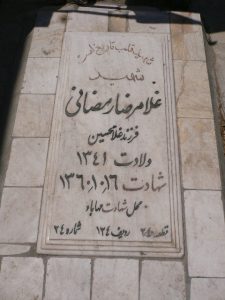 شهید
غلامرضا رمضانی
فرزند غلامحسین
ولادت ۱۳۴۱
شهادت ۱۳۶۰،۱۰،۱۶
محل شهادت مهاباد
قطعه ۲۴ ردیف ۱۲۴ شماره ۲۴